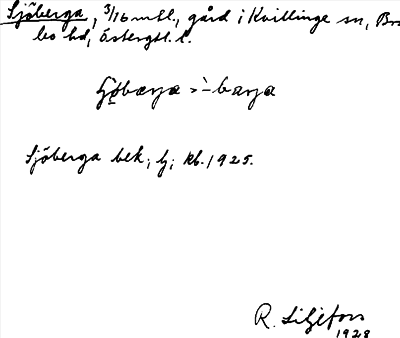 Sjöberga, 3/16 mtl., gård i Kvillinge sn, Br
bo hd, Östergtl. l.
Sjöberga bek, lj, kb. 1925.
R. Liljefors
1928